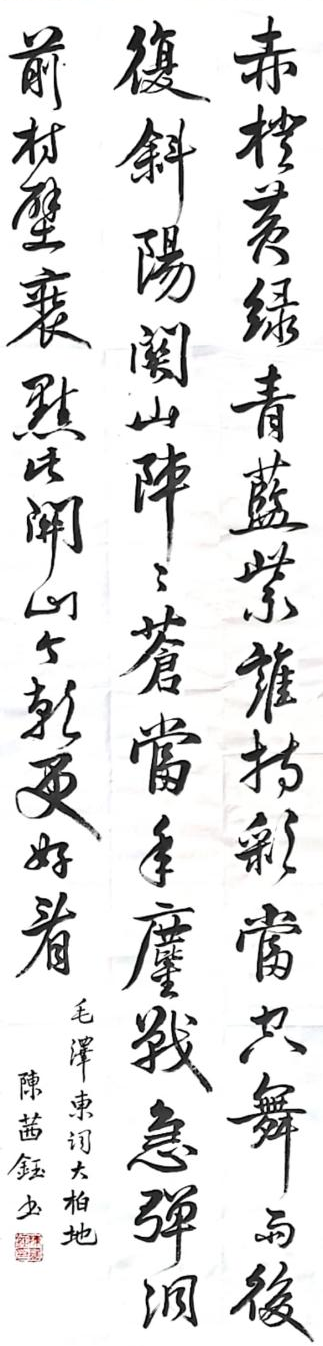 赤橙黄绿青藍紫誰持彩當空舞雨後
復斜陽關山陣〻蒼當年鏖戰急彈洞
前村壁裝點此關山今朝更好看
毛澤東詞大柏地
陳茜鈺书